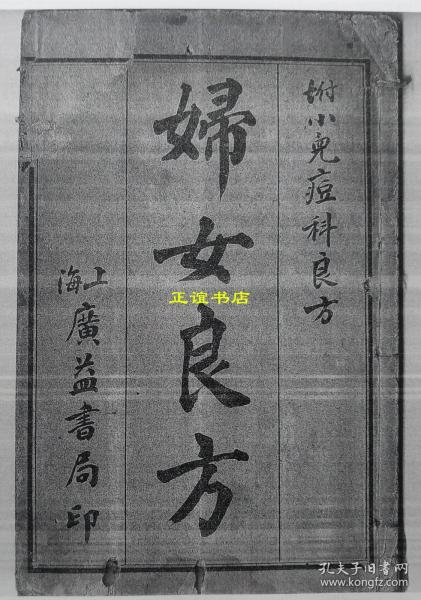 坿小兒痘科良方
婦女良方
上海
廣益書局印
正谊书店
孔夫子旧书网
www.kongfz.com